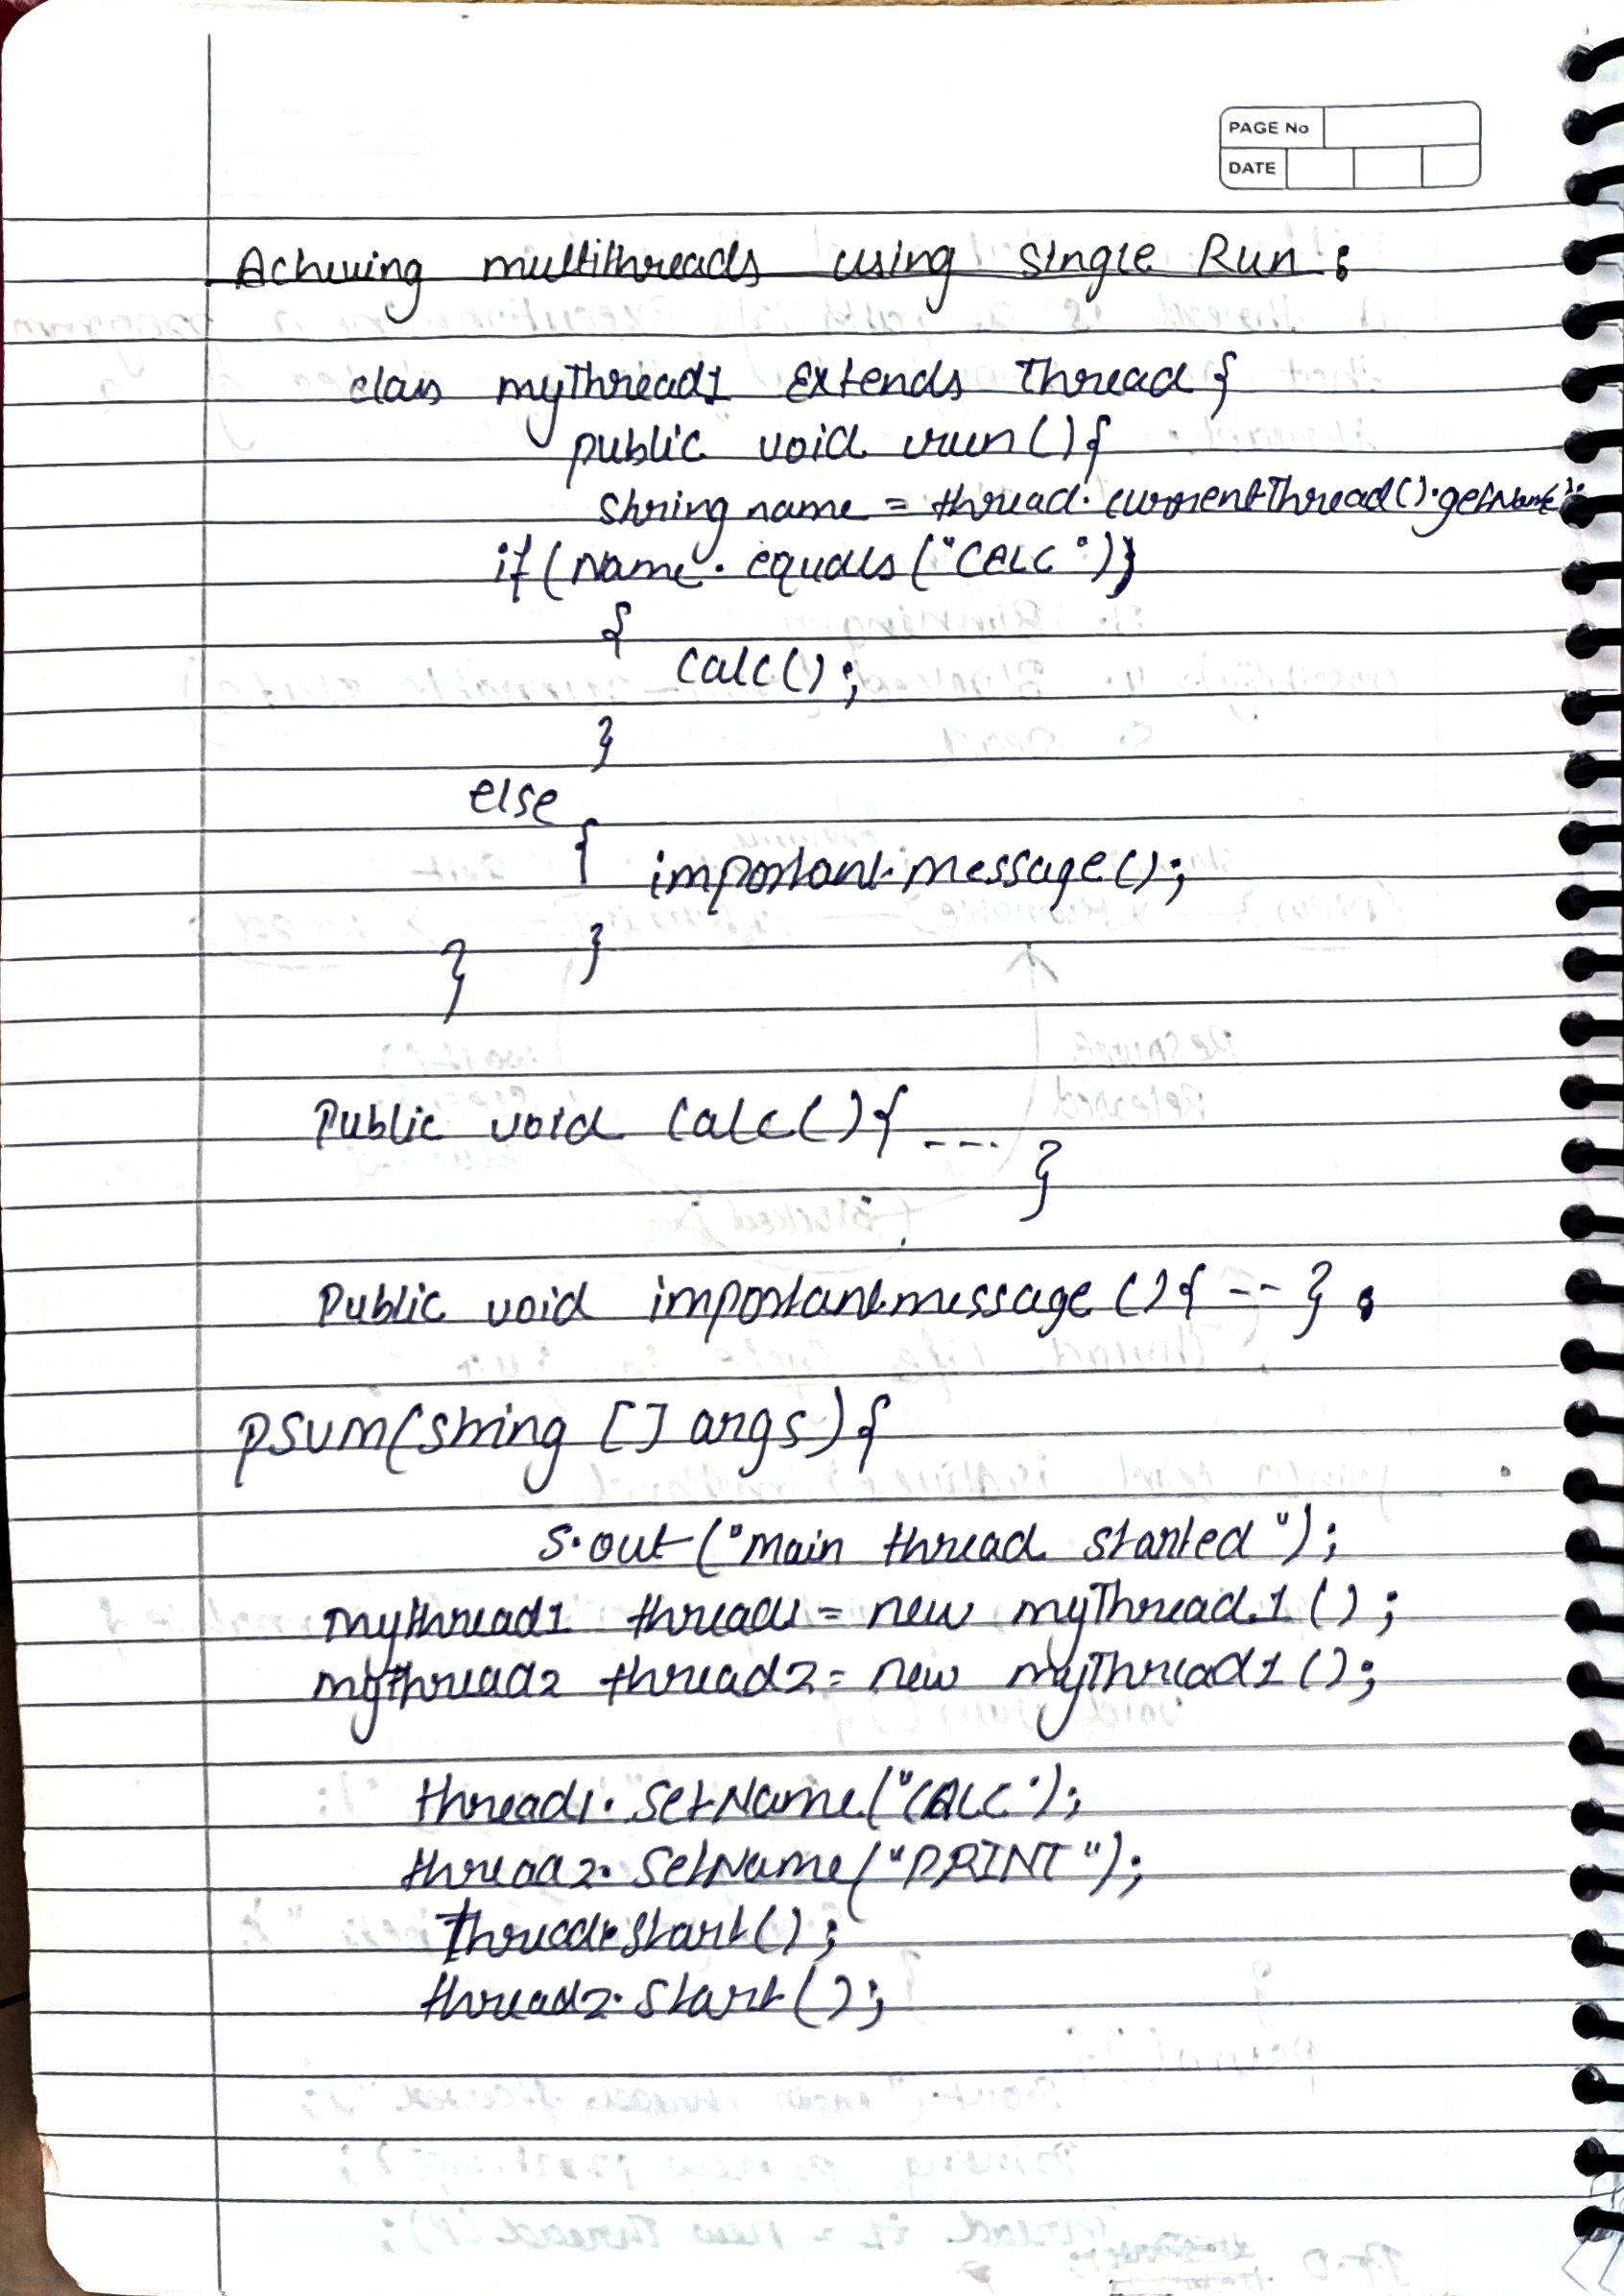 PAGE No
DATE
Achieving multithreads using single Run :
class myThread1 Extends Thread {
public void run() {
String name = thread. currentThread().getName();
if (name. equals ("CALC"))
{
calc();
}
else
{ importantmessage();
}
}
Public void calc() { ---- }
Public void importantmessage () { -- }
psvm(String [] args) {
S.out ("main thread started");
mythread1 thread1 = new myThread1 ();
mythread2 thread2 = new myThread1 ();
thread1. setName("CALC");
thread2. SetName("PRINT");
Thread1.start();
thread2. start();